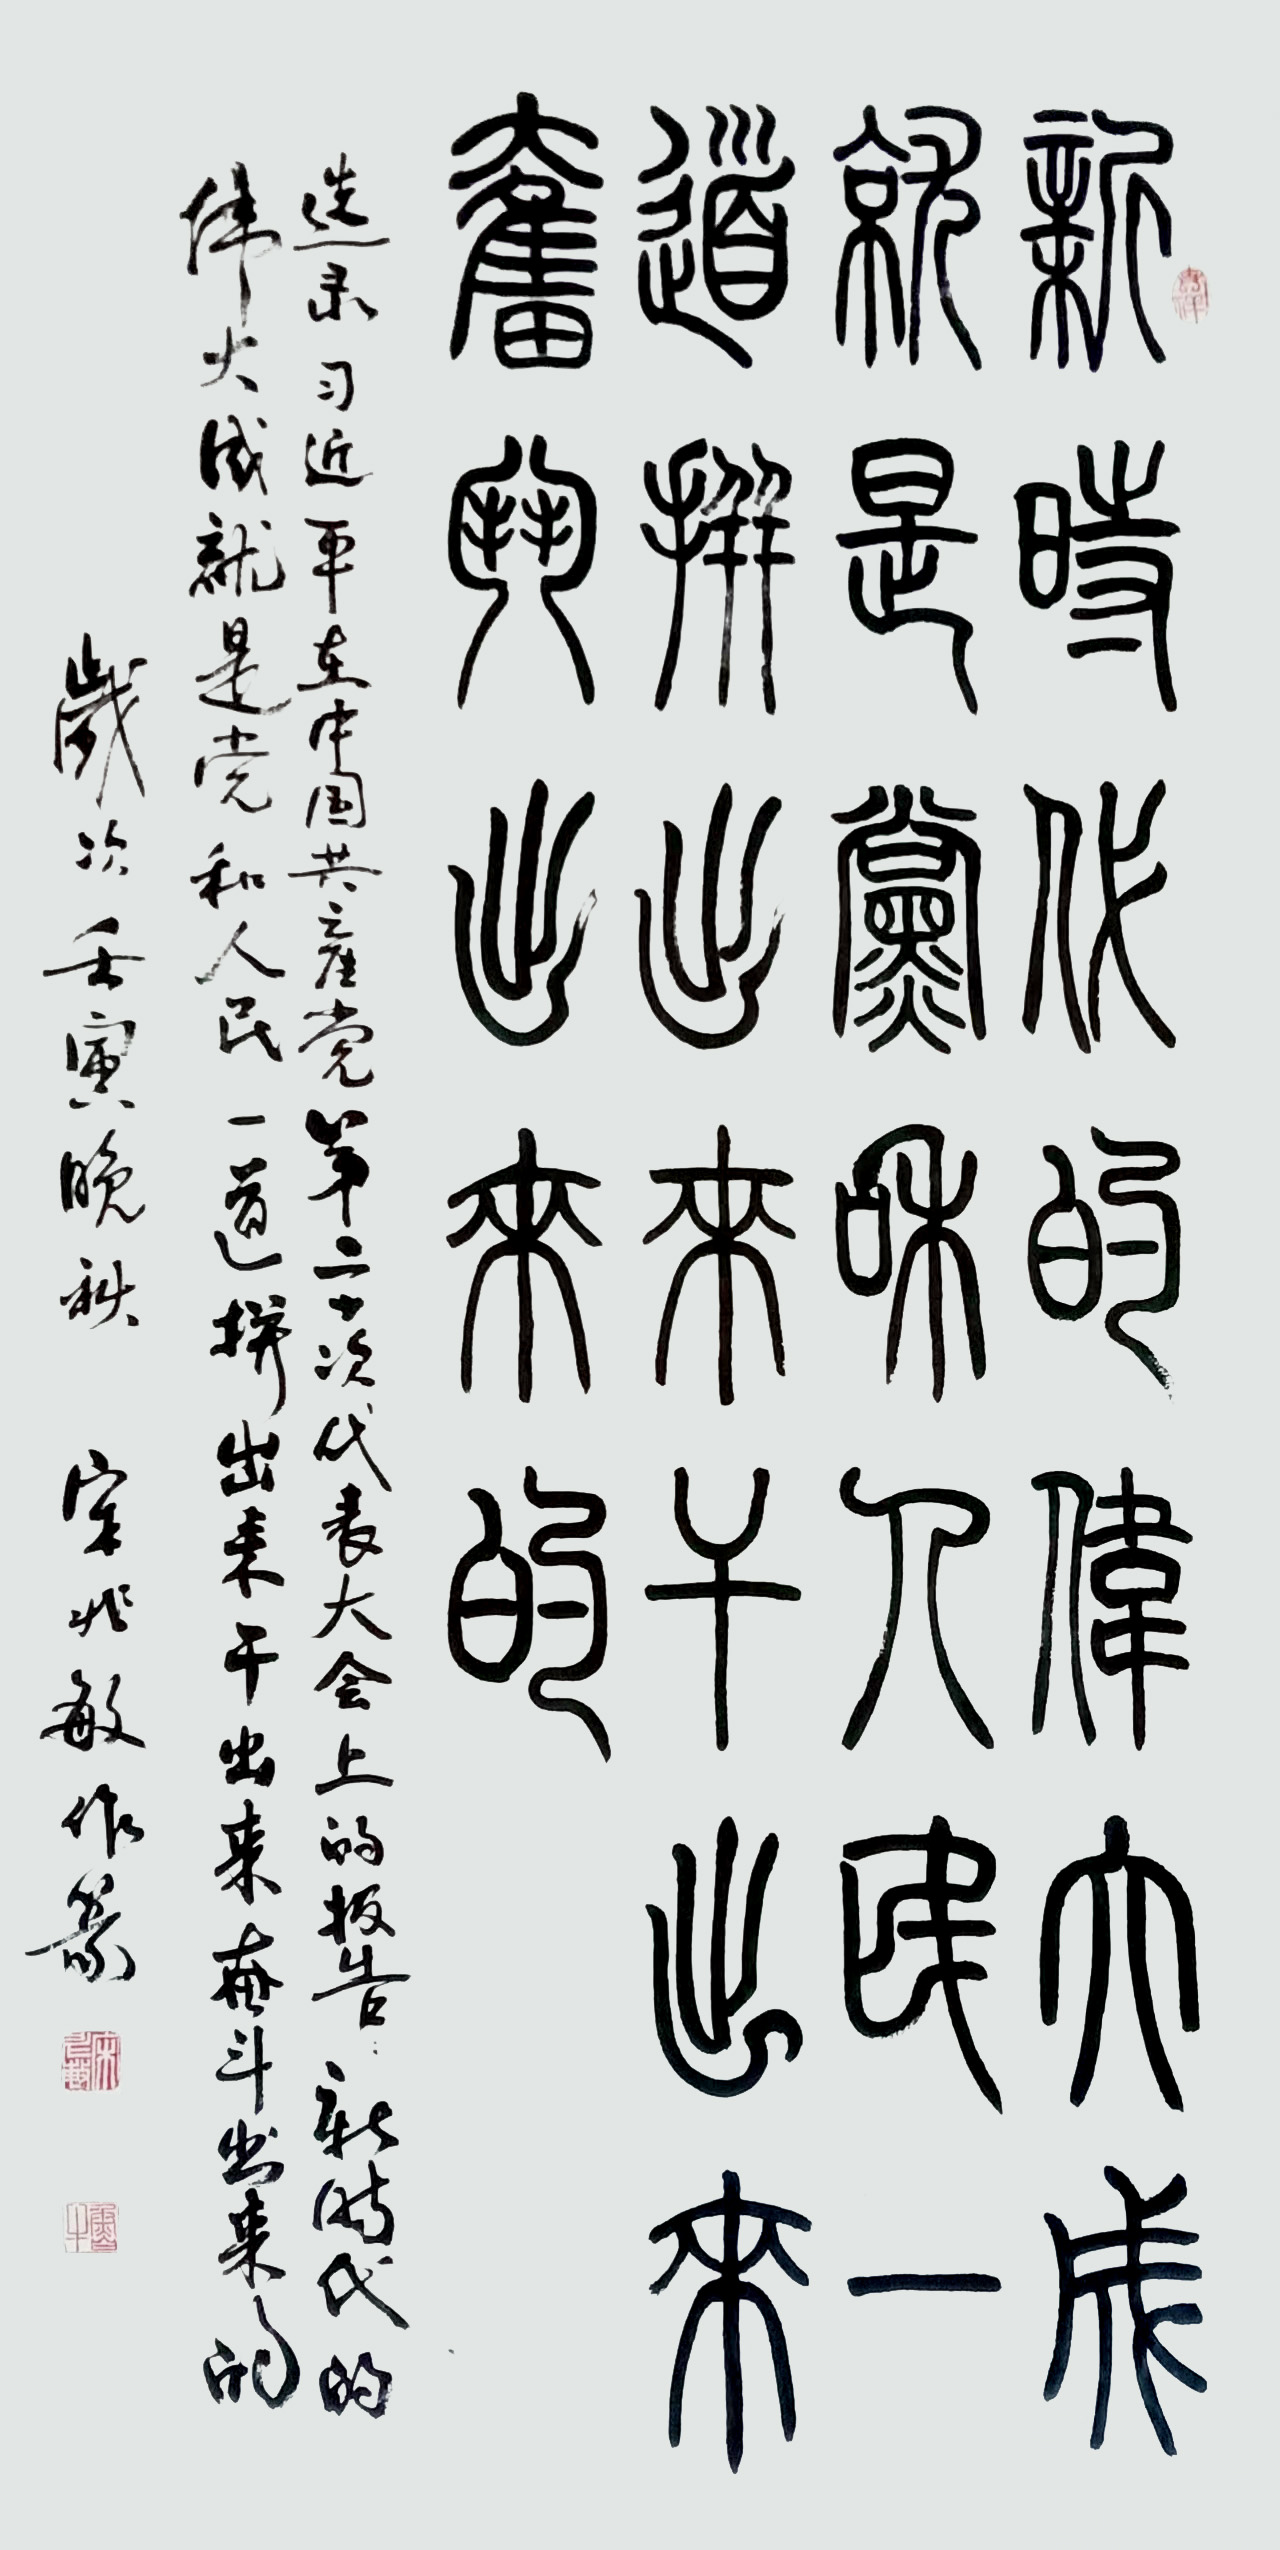 新時代的偉大成
就是黨和人民一
道拼出來干出來
奮鬥出來的
选录习近平在中国共产党第二十次代表大会上的报告：新时代的
伟大成就是党和人民一道拼出来干出来奋斗出来的
歲次壬寅晚秋 宋兆敏作篆